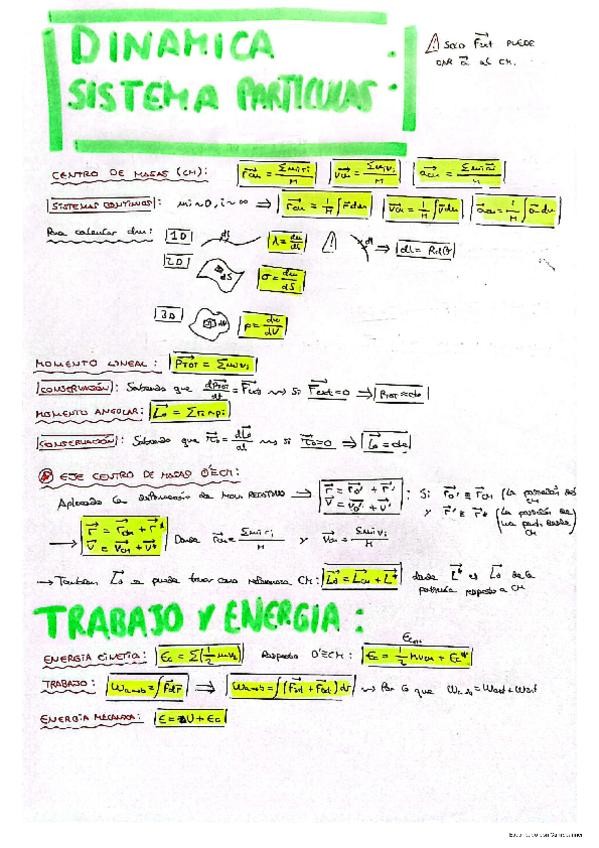 DINAMICA
SISTEMA PARTICULAS
⚠ SOLO F⃗ext PUEDE
DAR a⃗ al CM.
CENTRO DE MASAS (CM): r⃗CM = Σmi r⃗i / M   v⃗CM = Σmi v⃗i / M   a⃗CM = Σmi a⃗i / M
SISTEMAS CONTINUOS: mi ~ 0, i ~ ∞ ⇒ r⃗CM = 1/M ∫ r⃗ dm   v⃗CM = 1/M ∫ v⃗ dm   a⃗CM = 1/M ∫ a⃗ dm
Para calcular dm: 1D dl λ = dm/dl ⚠ dl → dl = R dθ
2D dS σ = dm/dS
3D dV ρ = dm/dV
MOMENTO LINEAL: P⃗TOT = Σ m vi
CONSERVACIÓN: Sabiendo que dP⃗TOT/dt = F⃗ext ⇝ Si F⃗ext = 0 ⇒ P⃗TOT = cte
MOMENTO ANGULAR: L⃗o = Σ ri ∧ pi
CONSERVACIÓN: Sabiendo que = dL⃗o/dt ⇝ si = 0 ⇒ L⃗o = cte
EJE CENTRO DE MASAS O'≡CM:
Aplicando la de Mov. RELATIVO → r⃗ = r⃗o' + r⃗' v⃗ = v⃗o' + v⃗' : Si r⃗o' ≡ r⃗CM (la posición del CM)
y r⃗' ≡ r⃗* (la posición de una desde CM)
→ r⃗ = r⃗CM + r⃗* v⃗ = v⃗CM + v⃗* Donde r⃗CM = Σmi ri / M y v⃗CM = Σmi vi / M
→ También L⃗o se puede tomar como referencia CM: L⃗o = L⃗CM + L⃗* donde L⃗* es L⃗o de la
partícula respecto a CM
TRABAJO Y ENERGIA:
Ec,CM
ENERGIA CINETICA: Ec = Σ(1/2 m vi) Respecto O'≡CM: Ec = 1/2 M vCM + Ec*
TRABAJO: Wa→b = ∫ F⃗ dr⃗ ⇒ Wa→b = ∫ (F⃗ext + F⃗int) dr ⇝ Por lo que Wa→b = Wext + Wint
ENERGIA MECANICA: E = U + Ec